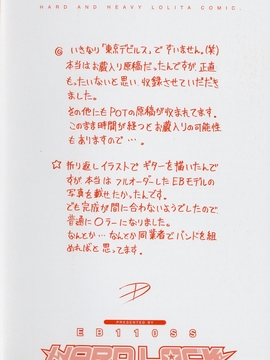 HARD AND HEAVY LOLITA COMIC.
◎ いきなり「東京デビルス」ですいません。(笑)
本当はお蔵入り原稿だったんですが正直
もったいないと思い収録させていただき
ました。
その他にもPOTの原稿が収まれてます。
このまま時間が経つとお蔵入りの可能性
もありますので…
☆ 折り返しイラストでギターを描いたんで
すが本当はフルオーダーしたEBモデルの
写真を載せたかったんです。
でも完成が間に合わないようでしたので
普通にカラーになりました。
なんとか…なんとか同業者でバンドを組
めればと思ってます。
PRESENTED BY
EB110SS
HARD LOCK